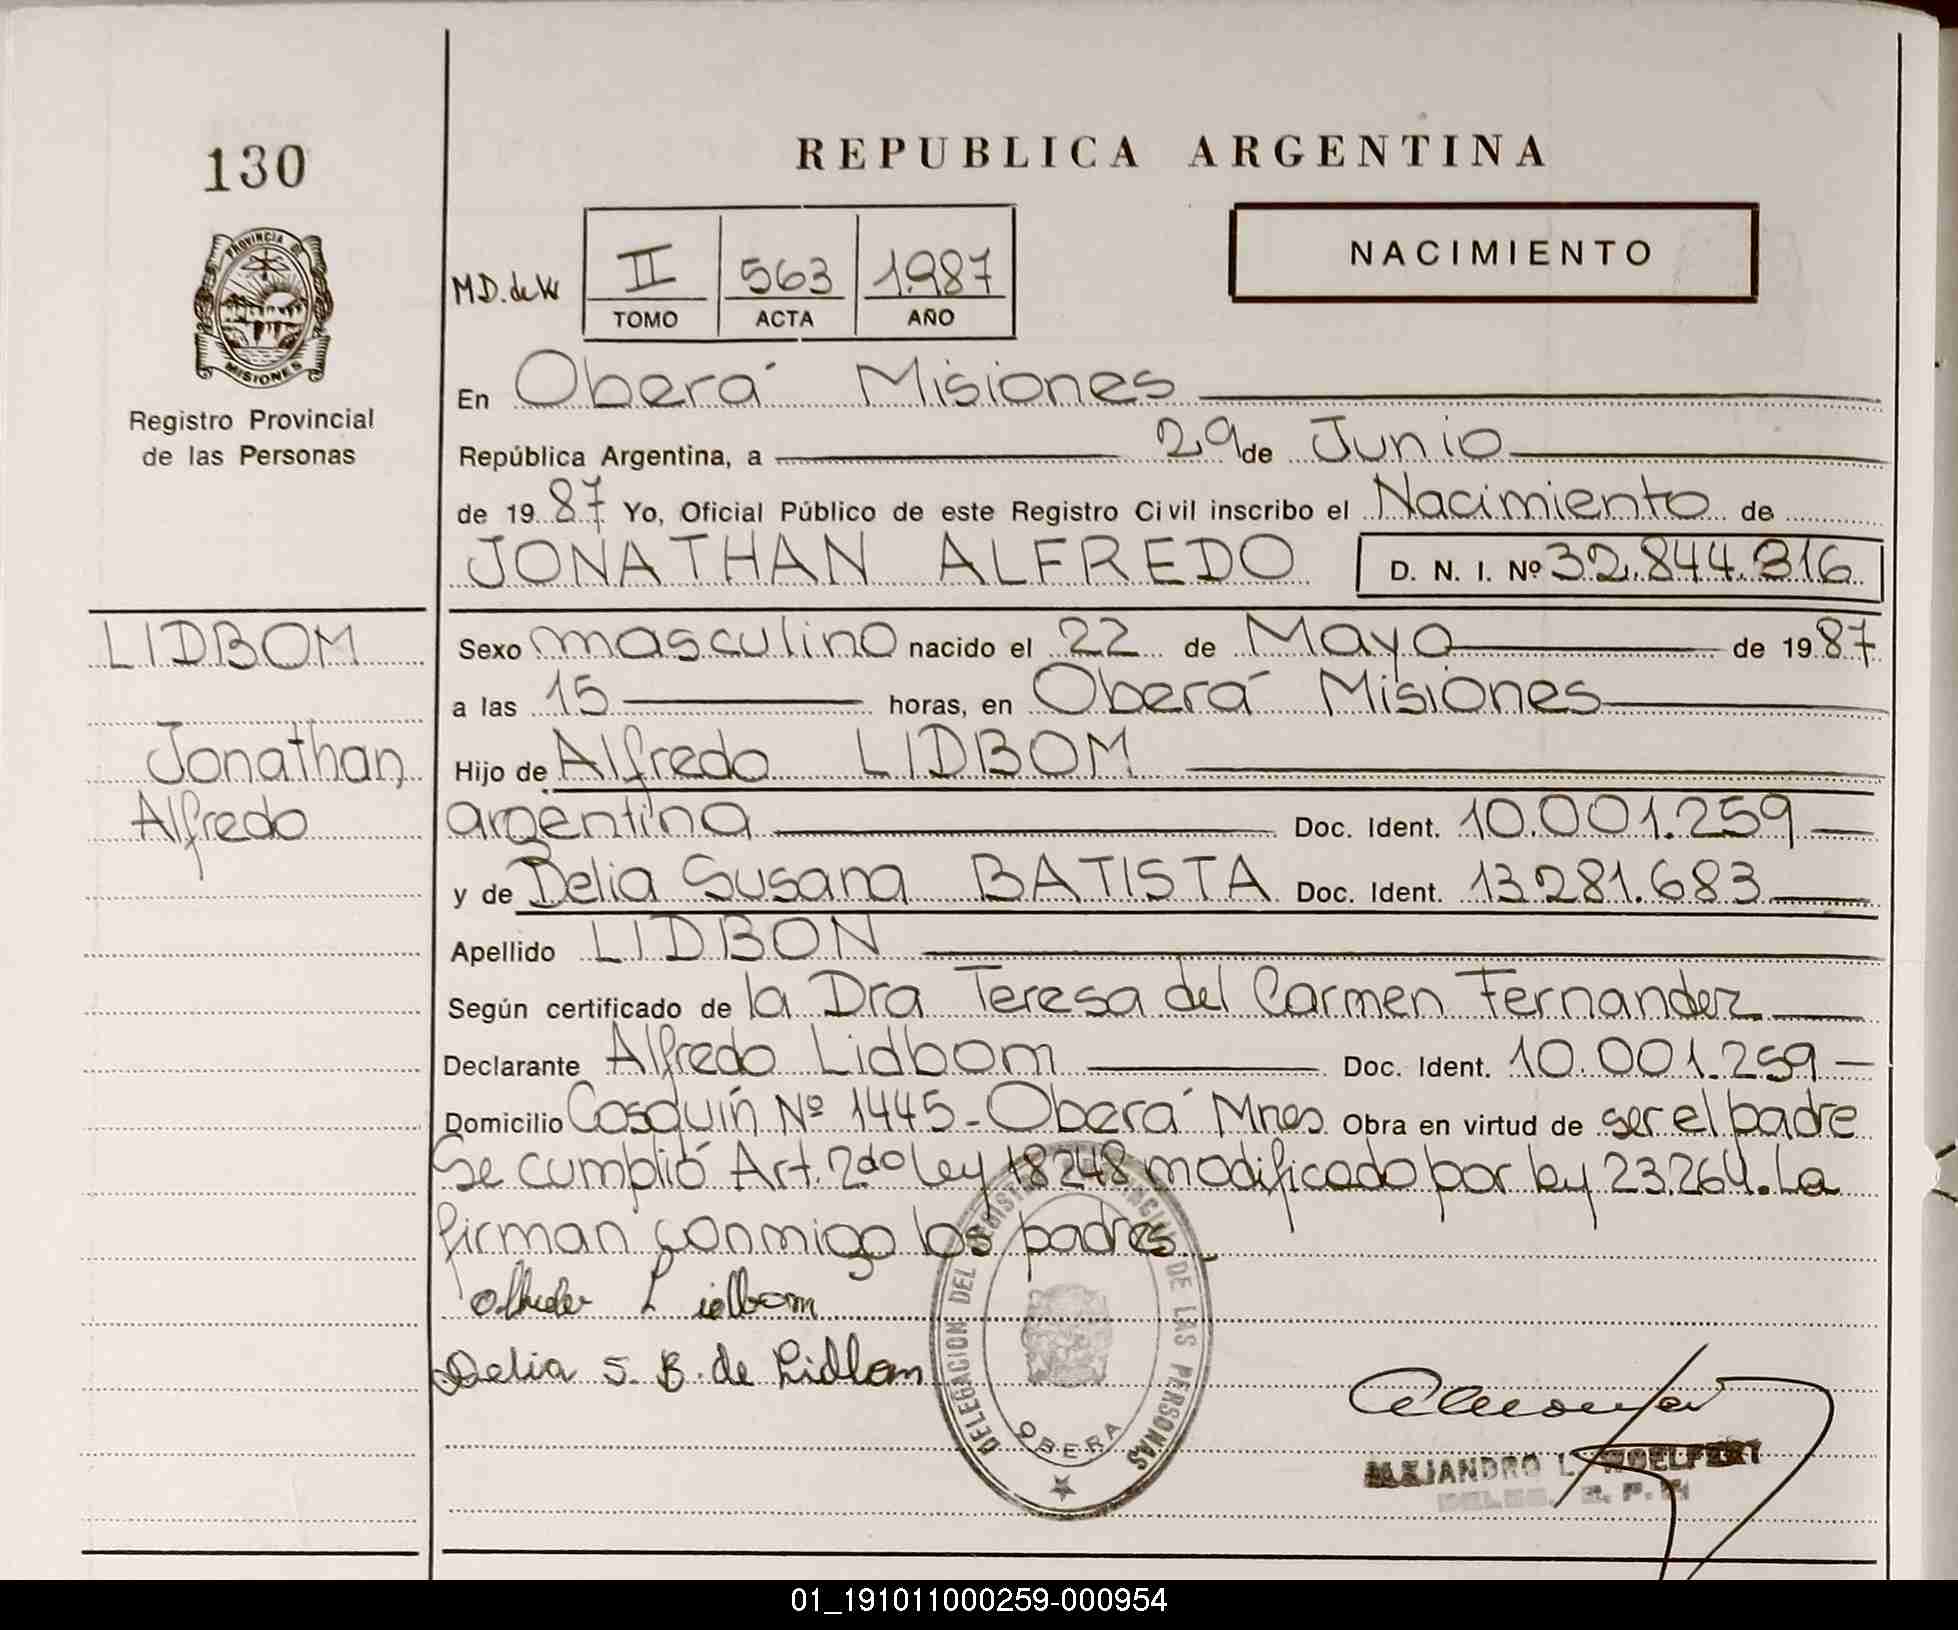 130
PROVINCIA DE
MISIONES
Registro Provincial
de las Personas
LIDBOM
Jonathan
Alfredo
REPUBLICA ARGENTINA
NACIMIENTO
MD. de W
II 563 1987
TOMO ACTA AÑO
En Oberá Misiones
República Argentina, a 29 de Junio
de 1987 Yo, Oficial Público de este Registro Civil inscribo el Nacimiento de
JONATHAN ALFREDO D. N. I. Nº 32.844.316
Sexo masculino nacido el 22 de Mayo de 1987
a las 15 horas, en Oberá Misiones
Hijo de Alfredo LIDBOM
argentina Doc. Ident. 10.001.259
y de Delia Susana BATISTA Doc. Ident. 13.281.683
Apellido LIDBON
Según certificado de la Dra Teresa del Carmen Fernandez
Declarante Alfredo Lidbom Doc. Ident. 10.001.259
Domicilio Cosquín Nº 1445 - Oberá Mnes Obra en virtud de ser el padre
Se cumplió Art. 2do Ley 18248 modificado por ley 23.264. La
firman conmigo los padres
Lidbom
Delia S. B. de Lidbom
DELEGACION DEL REGISTRO PROVINCIAL DE LAS PERSONAS
OBERA
ALEJANDRO L.
01_191011000259-000954